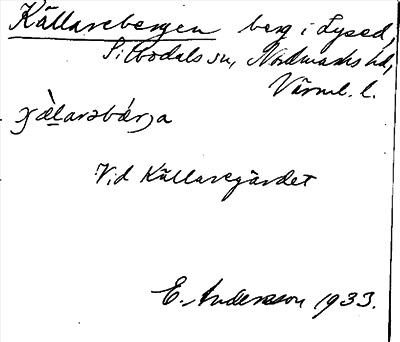 Källarebergen berg i Lysed,
Silbodals sn, Nordmarks hd,
Värml. l.
Vid Källaregärdet
E. Andersson 1933.